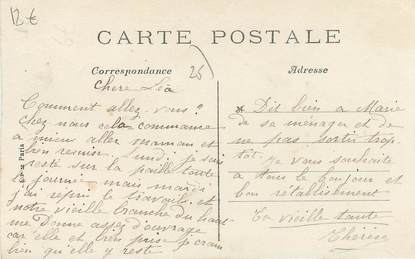 12 €
CARTE POSTALE
Correspondance
26
Adresse
Chere Léa
Comment allez vous?
Chez nous cela commance
a mieux aller maman est
bien remise, lundi je suis
resté sur la paille toute
la journé mais mardi
j'ai repri le travail et
notre vieille branche du haut
me Donne assez d'ouvrage
car elle est bien prise je crains
bien qu'elle y reste
Dit bien a Marie
de se ménager et de
ne pas sortir trop
tôt je vous souhaite
a tous le bonjour et
bon rétablissement
Ta vieille tante
Thérèse
Paris